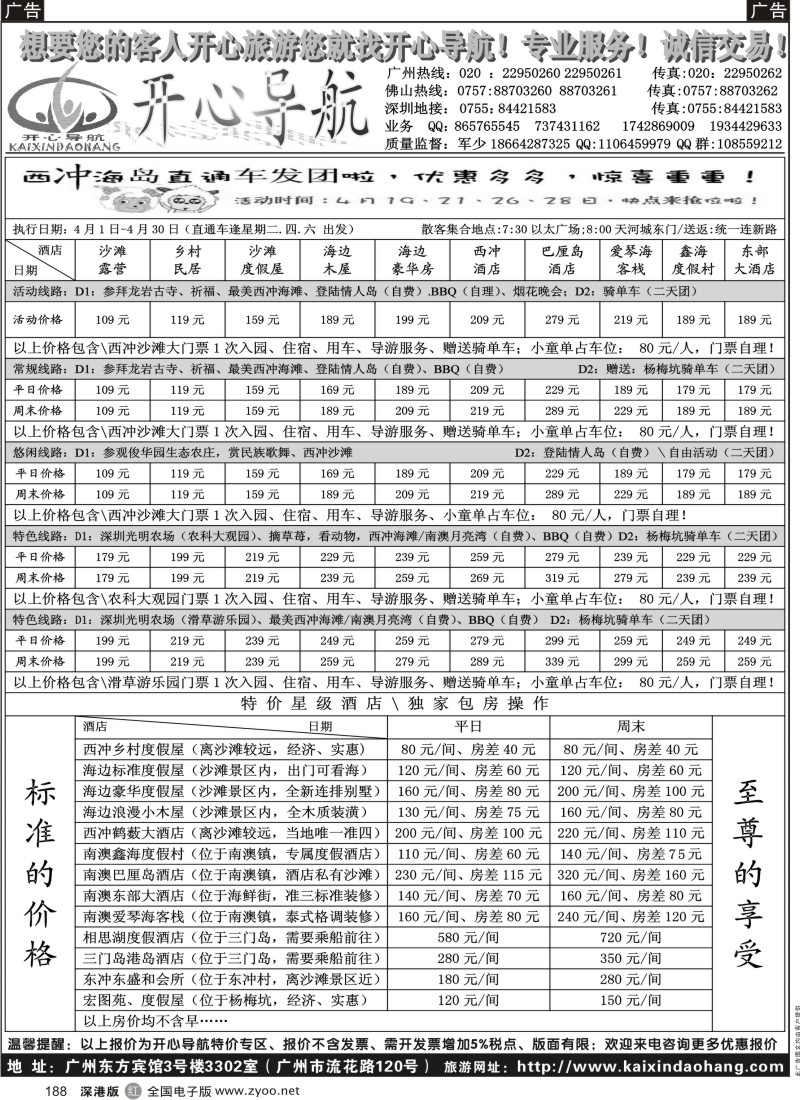 广告 广告
想要您的客人开心旅游您就找开心导航！专业服务！诚信交易！
开心导航
KAIXINDAOHANG
开心导航
广州热线：020 ：22950260 22950261 传真:020：22950262
佛山热线：0757:88703260 88703261 传真:0757:88703262
深圳地接： 0755：84421583 传真:0755:84421583
业务 QQ: 865765545 737431162 1742869009 1934429633
质量监督：军少 18664287325 QQ:1106459979 QQ 群:108559212
西冲海岛直通车发团啦，优惠多多，惊喜重重！
活动时间：4月19、21、26、28日，快点来抢位啦！
执行日期：4 月 1 日-4 月 30 日（直通车逢星期二.四.六 出发） 散客集合地点:7:30 以太广场;8:00 天河城东门/送返:统一连新路
酒店 日期 沙滩露营 乡村民居 沙滩度假屋 海边木屋 海边豪华房 西冲酒店 巴厘岛酒店 爱琴海客栈 鑫海度假村 东部大酒店
活动线路：D1：参拜龙岩古寺、祈福、最美西冲海滩、登陆情人岛（自费）.BBQ（自理）、烟花晚会；D2：骑单车（二天团）
活动价格 109 元 119 元 159 元 189 元 199 元 209 元 279 元 219 元 189 元 189 元
以上价格包含\西冲沙滩大门票 1 次入园、住宿、用车、导游服务、赠送骑单车；小童单占车位： 80 元/人，门票自理！
常规线路：D1：参拜龙岩古寺、祈福、最美西冲海滩、登陆情人岛（自费）、BBQ（自费） D2：赠送：杨梅坑骑单车（二天团）
平日价格 109 元 119 元 159 元 169 元 189 元 209 元 229 元 189 元 179 元 179 元
周末价格 109 元 119 元 159 元 189 元 209 元 219 元 289 元 229 元 189 元 189 元
以上价格包含\西冲沙滩大门票 1 次入园、住宿、用车、导游服务、赠送骑单车；小童单占车位： 80 元/人，门票自理！
悠闲线路：D1：参观俊华园生态农庄，赏民族歌舞、西冲沙滩 D2：登陆情人岛（自费）\自由活动（二天团）
平日价格 109 元 119 元 159 元 169 元 189 元 209 元 229 元 189 元 179 元 179 元
周末价格 109 元 119 元 159 元 189 元 209 元 219 元 289 元 229 元 189 元 189 元
以上价格包含\西冲沙滩大门票 1 次入园、住宿、用车、导游服务、小童单占车位： 80 元/人，门票自理！
特色线路：D1：深圳光明农场（农科大观园）、摘草莓，看动物，西冲海滩/南澳月亮湾（自费）、BBQ（自费）D2：杨梅坑骑单车（二天团）
平日价格 179 元 199 元 219 元 229 元 239 元 259 元 279 元 239 元 229 元 229 元
周末价格 179 元 199 元 219 元 239 元 259 元 269 元 319 元 279 元 239 元 239 元
以上价格包含\农科大观园门票 1 次入园、住宿、用车、导游服务、赠送骑单车；小童单占车位： 80 元/人，门票自理！
特色线路：D1：深圳光明农场（滑草游乐园）、最美西冲海滩/南澳月亮湾（自费）、BBQ（自费） D2：杨梅坑骑单车（二天团）
平日价格 199 元 219 元 239 元 249 元 259 元 279 元 299 元 259 元 249 元 249 元
周末价格 199 元 219 元 239 元 259 元 279 元 289 元 339 元 299 元 259 元 259 元
以上价格包含\滑草游乐园门票 1 次入园、住宿、用车、导游服务、赠送骑单车；小童单占车位： 80 元/人，门票自理！
特价星级酒店\独家包房操作
标准的价格
酒店 日期 平日 周末
西冲乡村度假屋（离沙滩较远，经济、实惠） 80 元/间、房差 40 元 80 元/间、房差 40 元
海边标准度假屋（沙滩景区内，出门可看海） 120 元/间、房差 60 元 120 元/间、房差 60 元
海边豪华度假屋（沙滩景区内，全新连排别墅） 160 元/间、房差 80 元 200 元/间、房差 100 元
海边浪漫小木屋（沙滩景区内，全木质装潢） 130 元/间、房差 75 元 160 元/间、房差 80 元
西冲鹤薮大酒店（离沙滩较远，当地唯一准四） 200 元/间、房差 100 元 220 元/间、房差 110 元
南澳鑫海度假村（位于南澳镇，专属度假酒店） 110 元/间、房差 60 元 140 元/间、房差 75 元
南澳巴厘岛酒店（位于南澳镇，酒店私有沙滩） 230 元/间、房差 115 元 320 元/间、房差 160 元
南澳东部大酒店（位于海鲜街，准三标准装修） 140 元/间、房差 70 元 160 元/间、房差 80 元
南澳爱琴海客栈（位于南澳镇，泰式格调装修） 160 元/间、房差 80 元 240 元/间、房差 120 元
相思湖度假酒店（位于三门岛，需要乘船前往） 580 元/间 720 元/间
三门岛港岛酒店（位于三门岛，需要乘船前往） 280 元/间 350 元/间
东冲东盛和会所（位于东冲村，离沙滩景区近） 180 元/间 280 元/间
宏图苑、度假屋（位于杨梅坑，经济、实惠） 120 元/间 150 元/间
以上房价均不含早……
至尊的享受
温馨提醒：以上报价为开心导航特价专区、报价不含发票、需开发票增加5%税点、版面有限；欢迎来电咨询更多优惠报价
地 址：广州东方宾馆3号楼3302室（广州市流花路120号） 旅游网址：http://www.kaixindaohang.com
188 深港版 红 全国电子版 www.zyoo.net